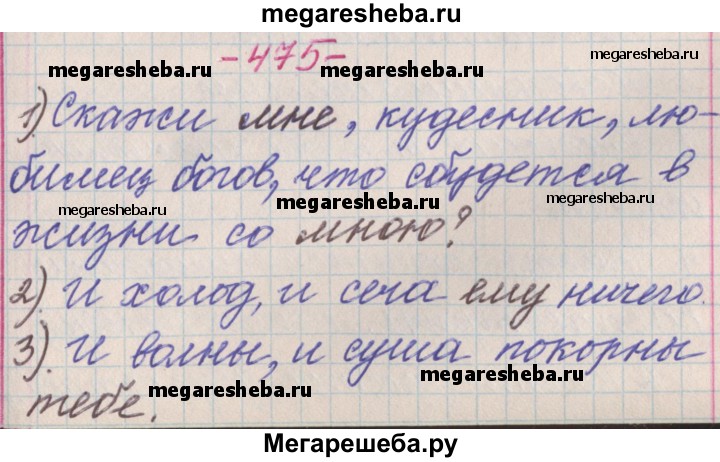 megaresheba.ru
-475-
megaresheba.ru
megaresheba.ru
megaresheba.ru
1) Скажи мне, кудесник, лю-
бимец богов, что сбудется в
megaresheba.ru
megaresheba.ru
megaresheba.ru
жизни со мною?
2). И холод, и сеча ему ничего.
3). И волны, и суша покорны
megaresheba.ru
megaresheba.ru
тебе.
Мегарешеба.ру